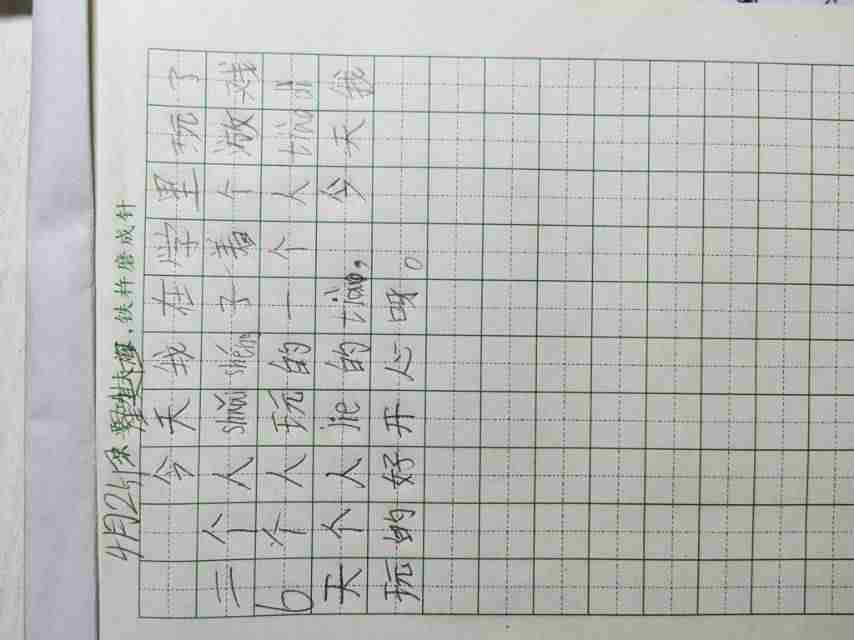 4月24日 铁杵磨成针
今天我在学里玩了
三个人shuǎi shéng子着个戏
6个人玩的一个人tiao
天个人jie的tiào，今天我
玩的好开心呀。